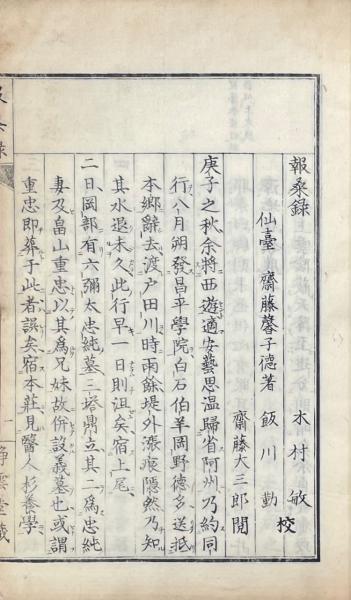 報桑録
木村敏
仙臺 齋藤馨子德著 飯川勤 校
齋藤大三郎閲
庚子之秋余將西遊適安藝思溫歸省阿州乃約同
行八月朔發昌平學院白石伯羊岡野德多送抵
本鄉辭去渡戸田川時雨餘堤外漲痕隱然乃知
其水退未久此行早一日則沮矣宿上尾
二日岡部有六彌太忠純墓三塔鼎立其二為忠純
妻及畠山重忠以其為兄妹故併設義墓也或謂
重忠即葬于此者誤矣宿本莊見醫人杉養學
一